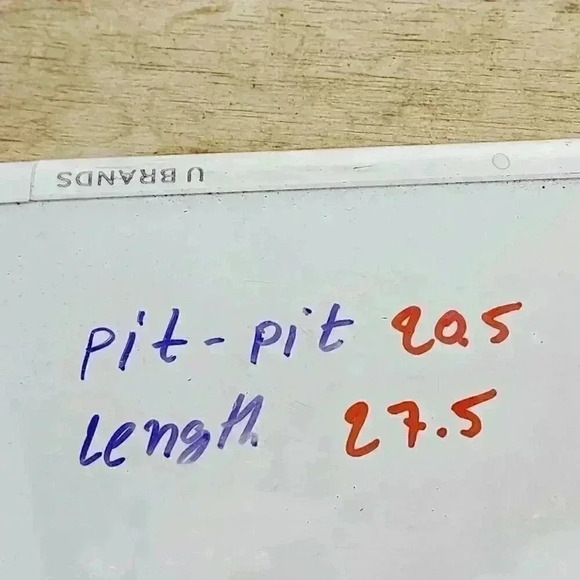 U BRANDS
pit-pit 20.5
Length 27.5